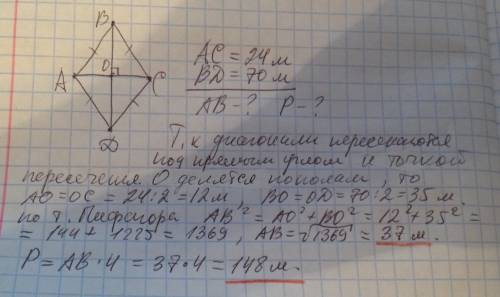 B
A O C
D
AC = 24 м
BD = 70 м
AB - ? P - ?
Т.к диагонали пересекаются
под прямым углом и точкой
пересечения O делятся пополам, то
AO = OC = 24 : 2 = 12 м, BO = OD = 70 : 2 = 35 м.
по т. Пифагора AB² = AO² + BO² = 12² + 35² =
= 144 + 1225 = 1369, AB = √1369 = 37 м.
P = AB · 4 = 37 · 4 = 148 м.